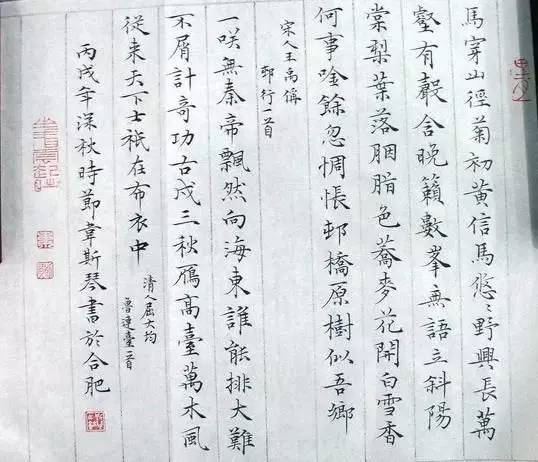 馬穿山徑菊初黃信馬悠〻野興長萬
壑有聲含晚籟數峯無語立斜陽
棠梨葉落胭脂色蕎麥花開白雪香
何事吟餘忽惆悵邨橋原樹似吾鄉
宋人王禹偁
邨行一首
一咲無秦帝飄然向海東誰能排大難
不屑計奇功古戍三秋雁高臺萬木風
從来天下士祇在布衣中
清人屈大均
魯連臺一首
丙戌年深秋時節韋斯琴書於合肥